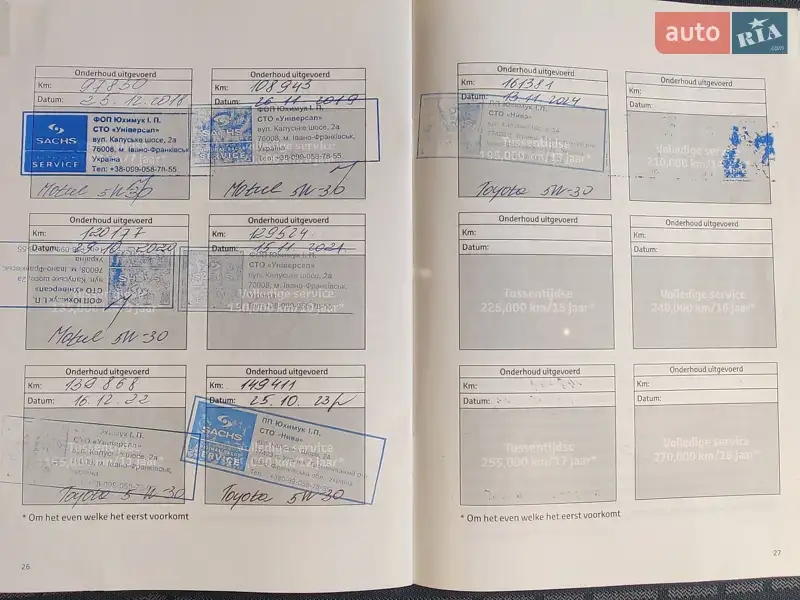 auto RIA .com
Onderhoud uitgevoerd
Km: 97850
Datum: 25.12.2018
SACHS
SERVICE
ФОП Юхимук І. П.
СТО «Універсал»
вул. Калуське шосе, 2а
76008, м. Івано-Франківськ
Україна
Тел: +38-099-058-78-55
Motul 5W-30
Onderhoud uitgevoerd
Km: 108943
Datum: 26 11 2019
SACHS
SERVICE
ФОП Юхимук І. П.
СТО «Універсал»
вул. Калуське шосе, 2а
76008, м. Івано-Франківськ,
Україна
Тел.: +38-099-058-78-55
Motul 5W-30
Onderhoud uitgevoerd
Km: 120177
Datum: 29.10.2020
ФОП Юхимук І. П.
СТО «Універсал»
вул. Калуське шосе, 2а
76008, м. Івано-Франківськ,
Україна
Motul 5W-30
Onderhoud uitgevoerd
Km: 129524
Datum: 15.11.2021
ФОП Юхимук І. П.
СТО «Універсал»
вул. Калуське шосе, 2а
76008, м. Івано-Франківськ,
Україна
Volledige service
Onderhoud uitgevoerd
Km: 139868
Datum: 16.12.22
Юхимук І. П.
СТО «Універсал»
вул. Калуське шосе, 2а
76008, м. Івано-Франківськ,
Україна
Toyota 5W-30
Onderhoud uitgevoerd
Km: 149411
Datum: 25.10.23р
SACHS
SERVICE
ПП Юхимук І. П.
СТО «Нива»
Toyota 5W30
* Om het even welke het eerst voorkomt
26
Onderhoud uitgevoerd
Km: 161381
Datum: 13.11.2024
ПП Юхимук І. П.
СТО «Нива»
Tussentijdse
195,000 km/13 jaar*
Toyota 5W-30
Onderhoud uitgevoerd
Km:
Datum:
Volledige service
210,000 km/14 jaar*
Onderhoud uitgevoerd
Km:
Datum:
Tussentijdse
225,000 km/15 jaar*
Onderhoud uitgevoerd
Km:
Datum:
Volledige service
240,000 km/16 jaar*
Onderhoud uitgevoerd
Km:
Datum:
Tussentijdse
255,000 km/17 jaar*
Onderhoud uitgevoerd
Km:
Datum:
Volledige service
270,000 km/18 jaar*
* Om het even welke het eerst voorkomt
27